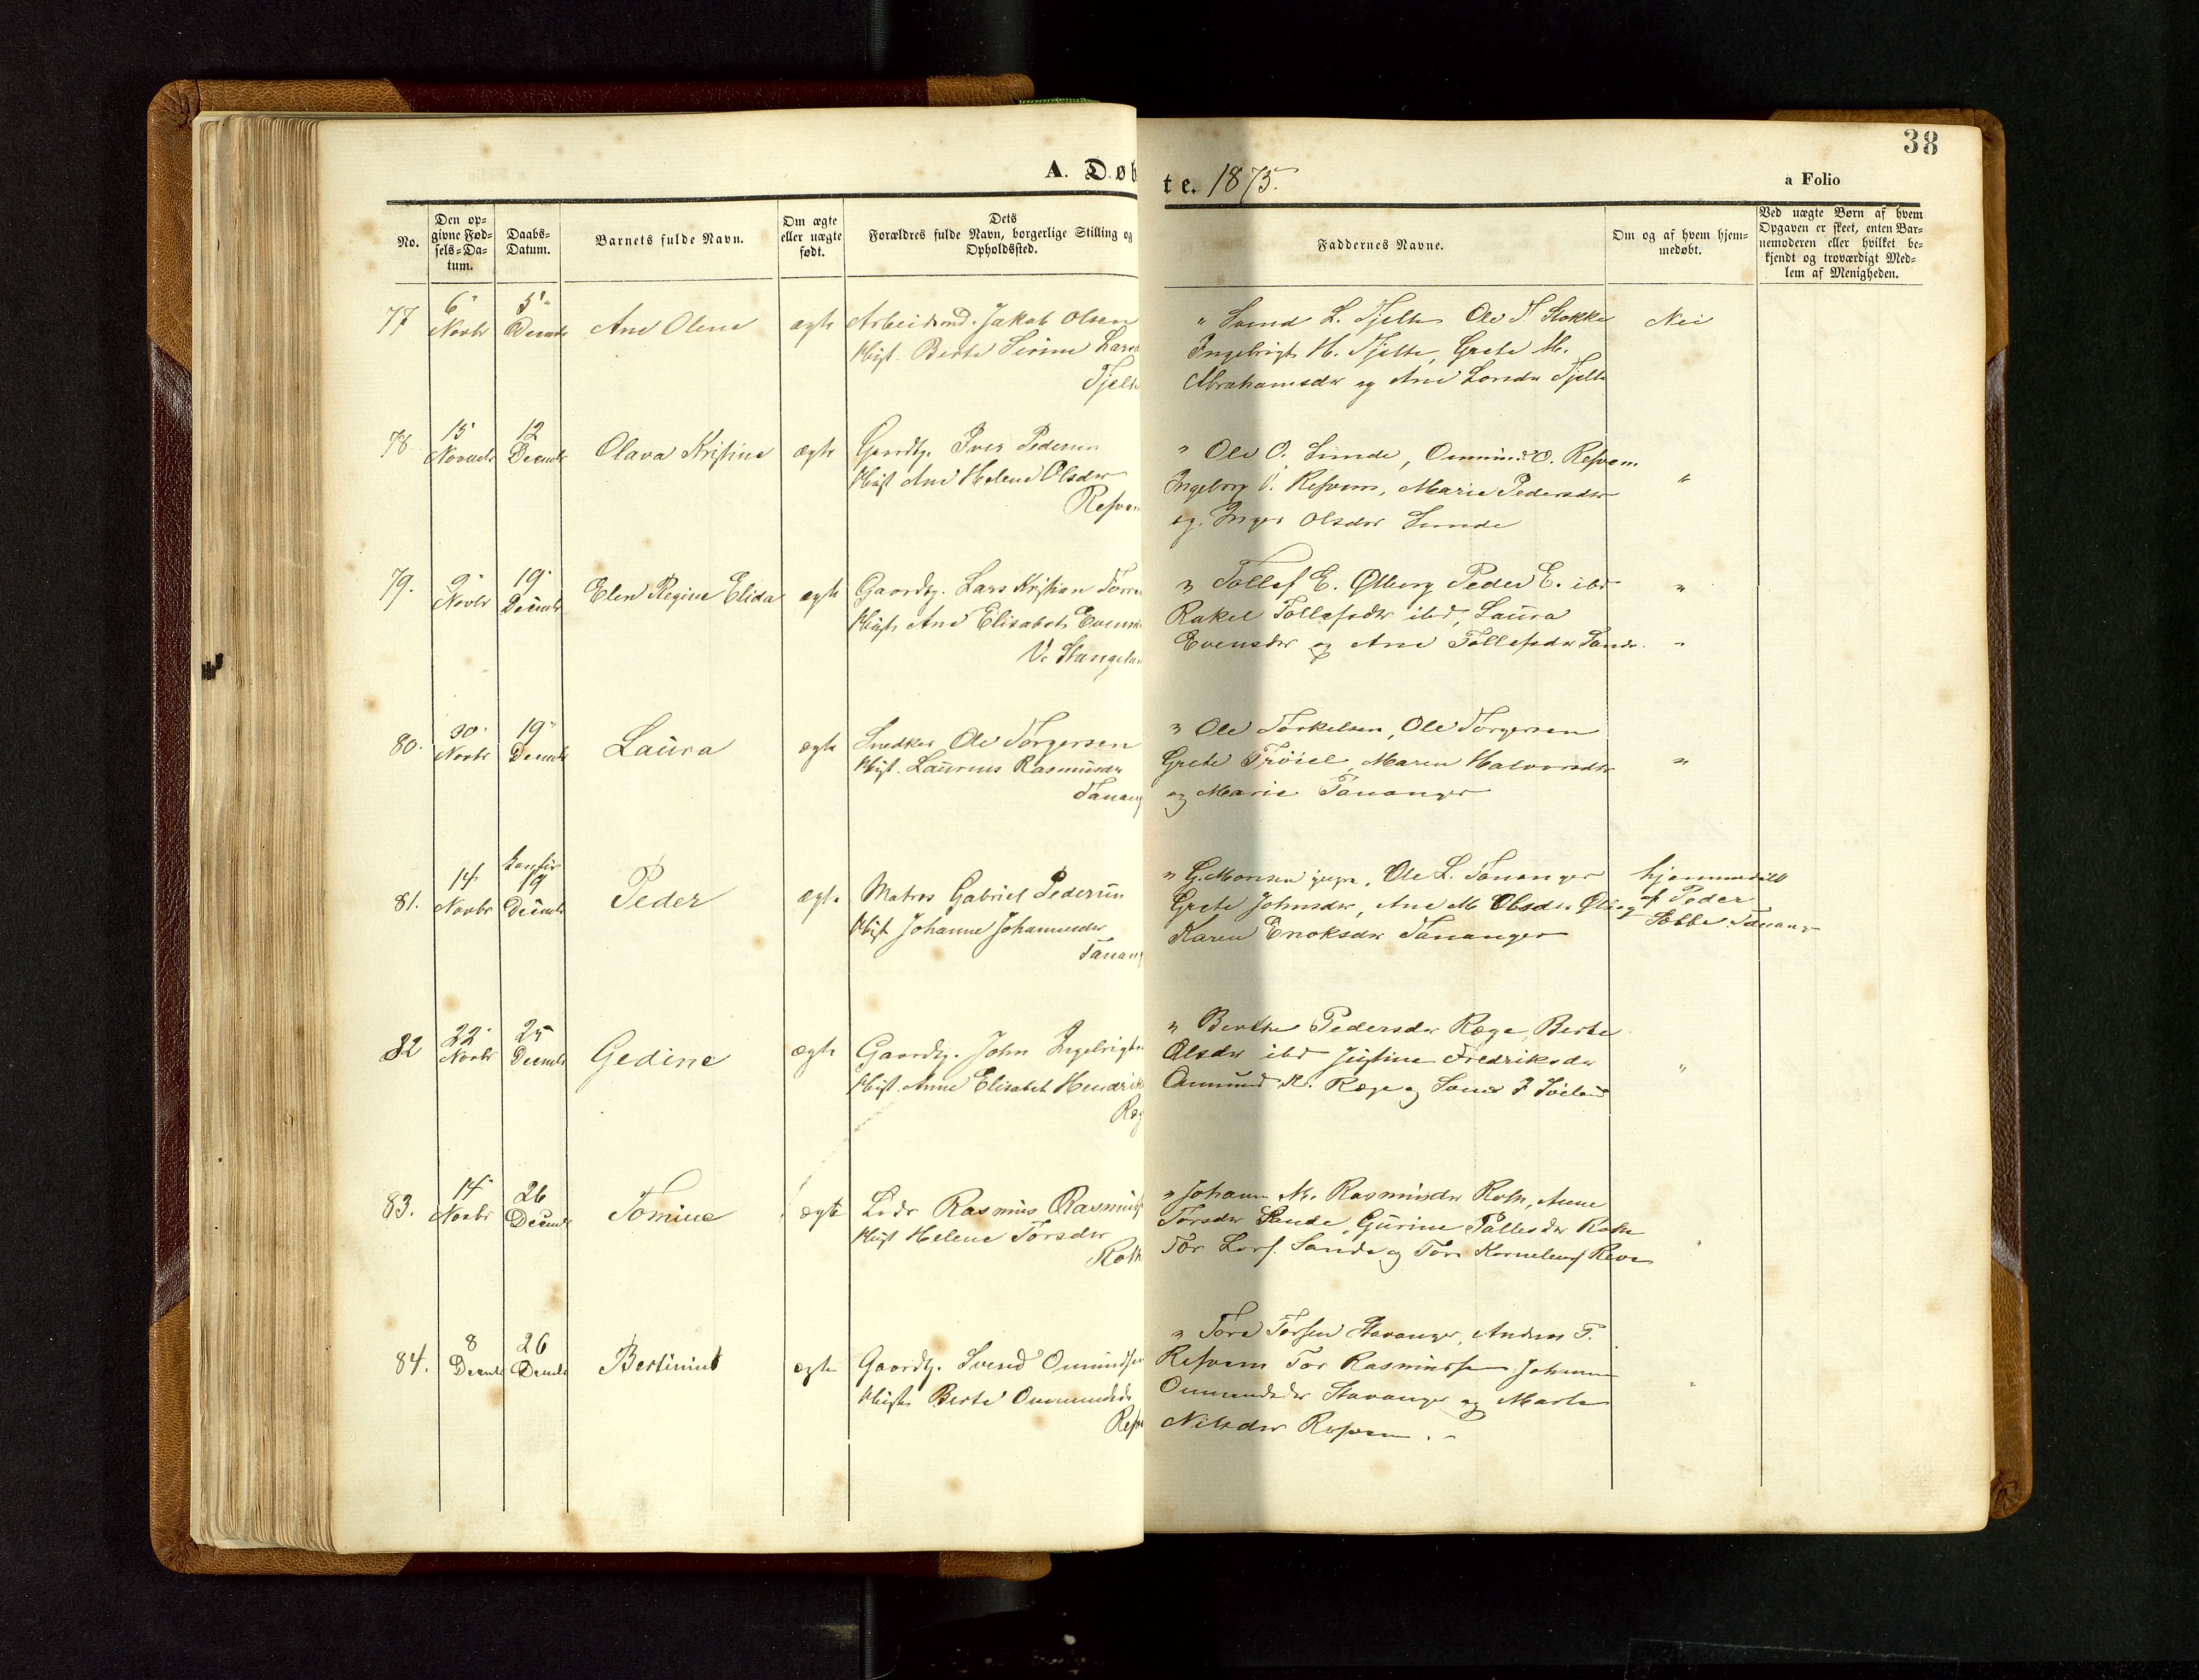 38
A. Døb
te. 1875.
a Folio
No.
Den op-
givne Fød-
sels-Da-
tum.
Daabs-
Datum.
Barnets fulde Navn.
Om ægte
eller uægte
født.
Dets
Forældres fulde Navn, borgerlige Stilling og
Opholdssted.
Faddernes Navne.
Om og af hvem hjem-
medøbt.
Ved uægte Børn af hvem
Opgaven er skeet, enten Bar-
nemoderen eller hvilket be-
kjendt og troværdigt Med-
lem af Menigheden.
77
6
Novbr
5
Decmbr
Ane Olene
ægte
Arbeidsmd. Jakob Olsen
Hust. Berte Serine Lars
Tjelt
" Svend L. Tjelte Ole T Stokke
Ingebrigt H. Tjelte, Grete M.
Abrahamsdr og Ane Larsdr Tjelte
Nei
78
15
Novembr
12
Decmbr
Olava Kristine
ægte
Gaardbr. Iver Pedersen
Hust Ane Helene Olsdr
" Ole O. Sunde, Ommund O.
Ingeborg Marie Pedersdr
og Inger Olsdr Sunde
"
79.
9
Novbr
19
Decmbr
Elen Regine Elida
ægte
Gaardbr. Lars Kristian
Hust. Ane Elisabet
V. Stangelan
" Tollef E. Ølberg Peder E. ibd
Rakel Tollefsdr ibd, Laura
Evensdr og Ane Tollefsdr Sande.
"
"
80.
30
Novbr
19
Decmbr
Laura
ægte
Snedker Ole Torgersen
Hust. Rasmusdr
Tanang
" Ole Torkelsen, Ole Torgersen
Grete Trøiel, Maren Halvorsdr
og Marie Tananger
"
81.
14
Novbr
19
Decmbr
Peder
ægte
Matros Gabriel Pedersen
Hust Johanne Johannesdr
Tanang
" G. Monsen Ole L. Tananger
Grete Johnsdr, Ane M Olsdr
Karen Enoksdr Tananger
hjemmedøbt
af Peder
Tananger
82
22
Novbr
25
Decmbr
Gedine
ægte
Gaardbr. John Ingebrigts
Hust. Anne Elisabet Hendrik
Ræg
" Berthe Pedersdr Ræge, Berte
Olsdr ibd Justine Fredriksdr
Ommund R. Ræge og
"
83.
14
Novbr
26
Decmbr
Tomine
ægte
Rasmus Rasmus
Hust Helene Torsdr
Roth
" Johanne M. Rasmusdr Roth, Anne
Torsdr Sande, Gurine Roth
Tor Sande og Tore
84.
8
Decmbr
26
Decmbr
ægte
Gaardbr. Svend
Hust. Berte Ommundsd
" Tore Torsen Stavanger, Andreas T.
Tor Rasmussen Johanne
Ommundsdr Stavanger og Marta
Nilsdr
"